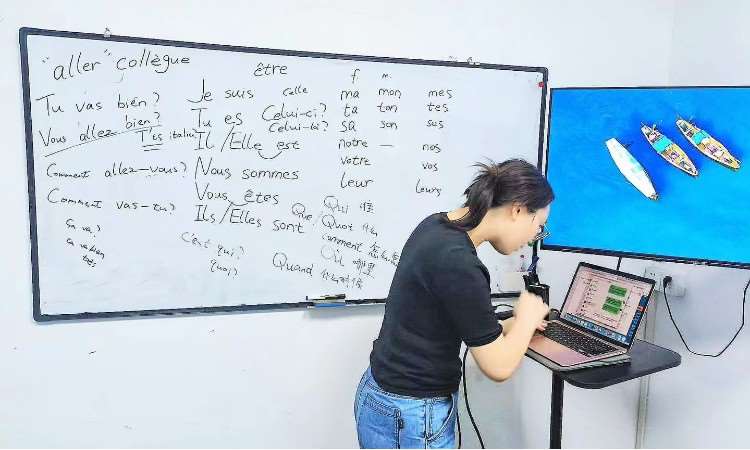 "aller" collègue
Tu vas bien?
Vous allez bien?
T'es italien
Comment allez-vous?
Comment vas-tu?
ça va?
ça va bien
très
être
Je suis
Tu es
Il/Elle est
Nous sommes
Vous êtes
Ils/Elles sont
Celle
Celui-ci?
C'est qui?
quoi?
f m.
ma mon mes
ta ton tes
sa son ses
notre — nos
votre vos
leur leurs
Qui 谁
Que/Quoi 什么
Comment 怎么
Où 哪里
Quand 什么时候